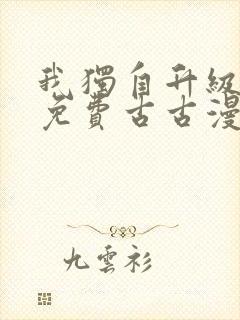 我獨自升級
免費古古漫
九雲衫